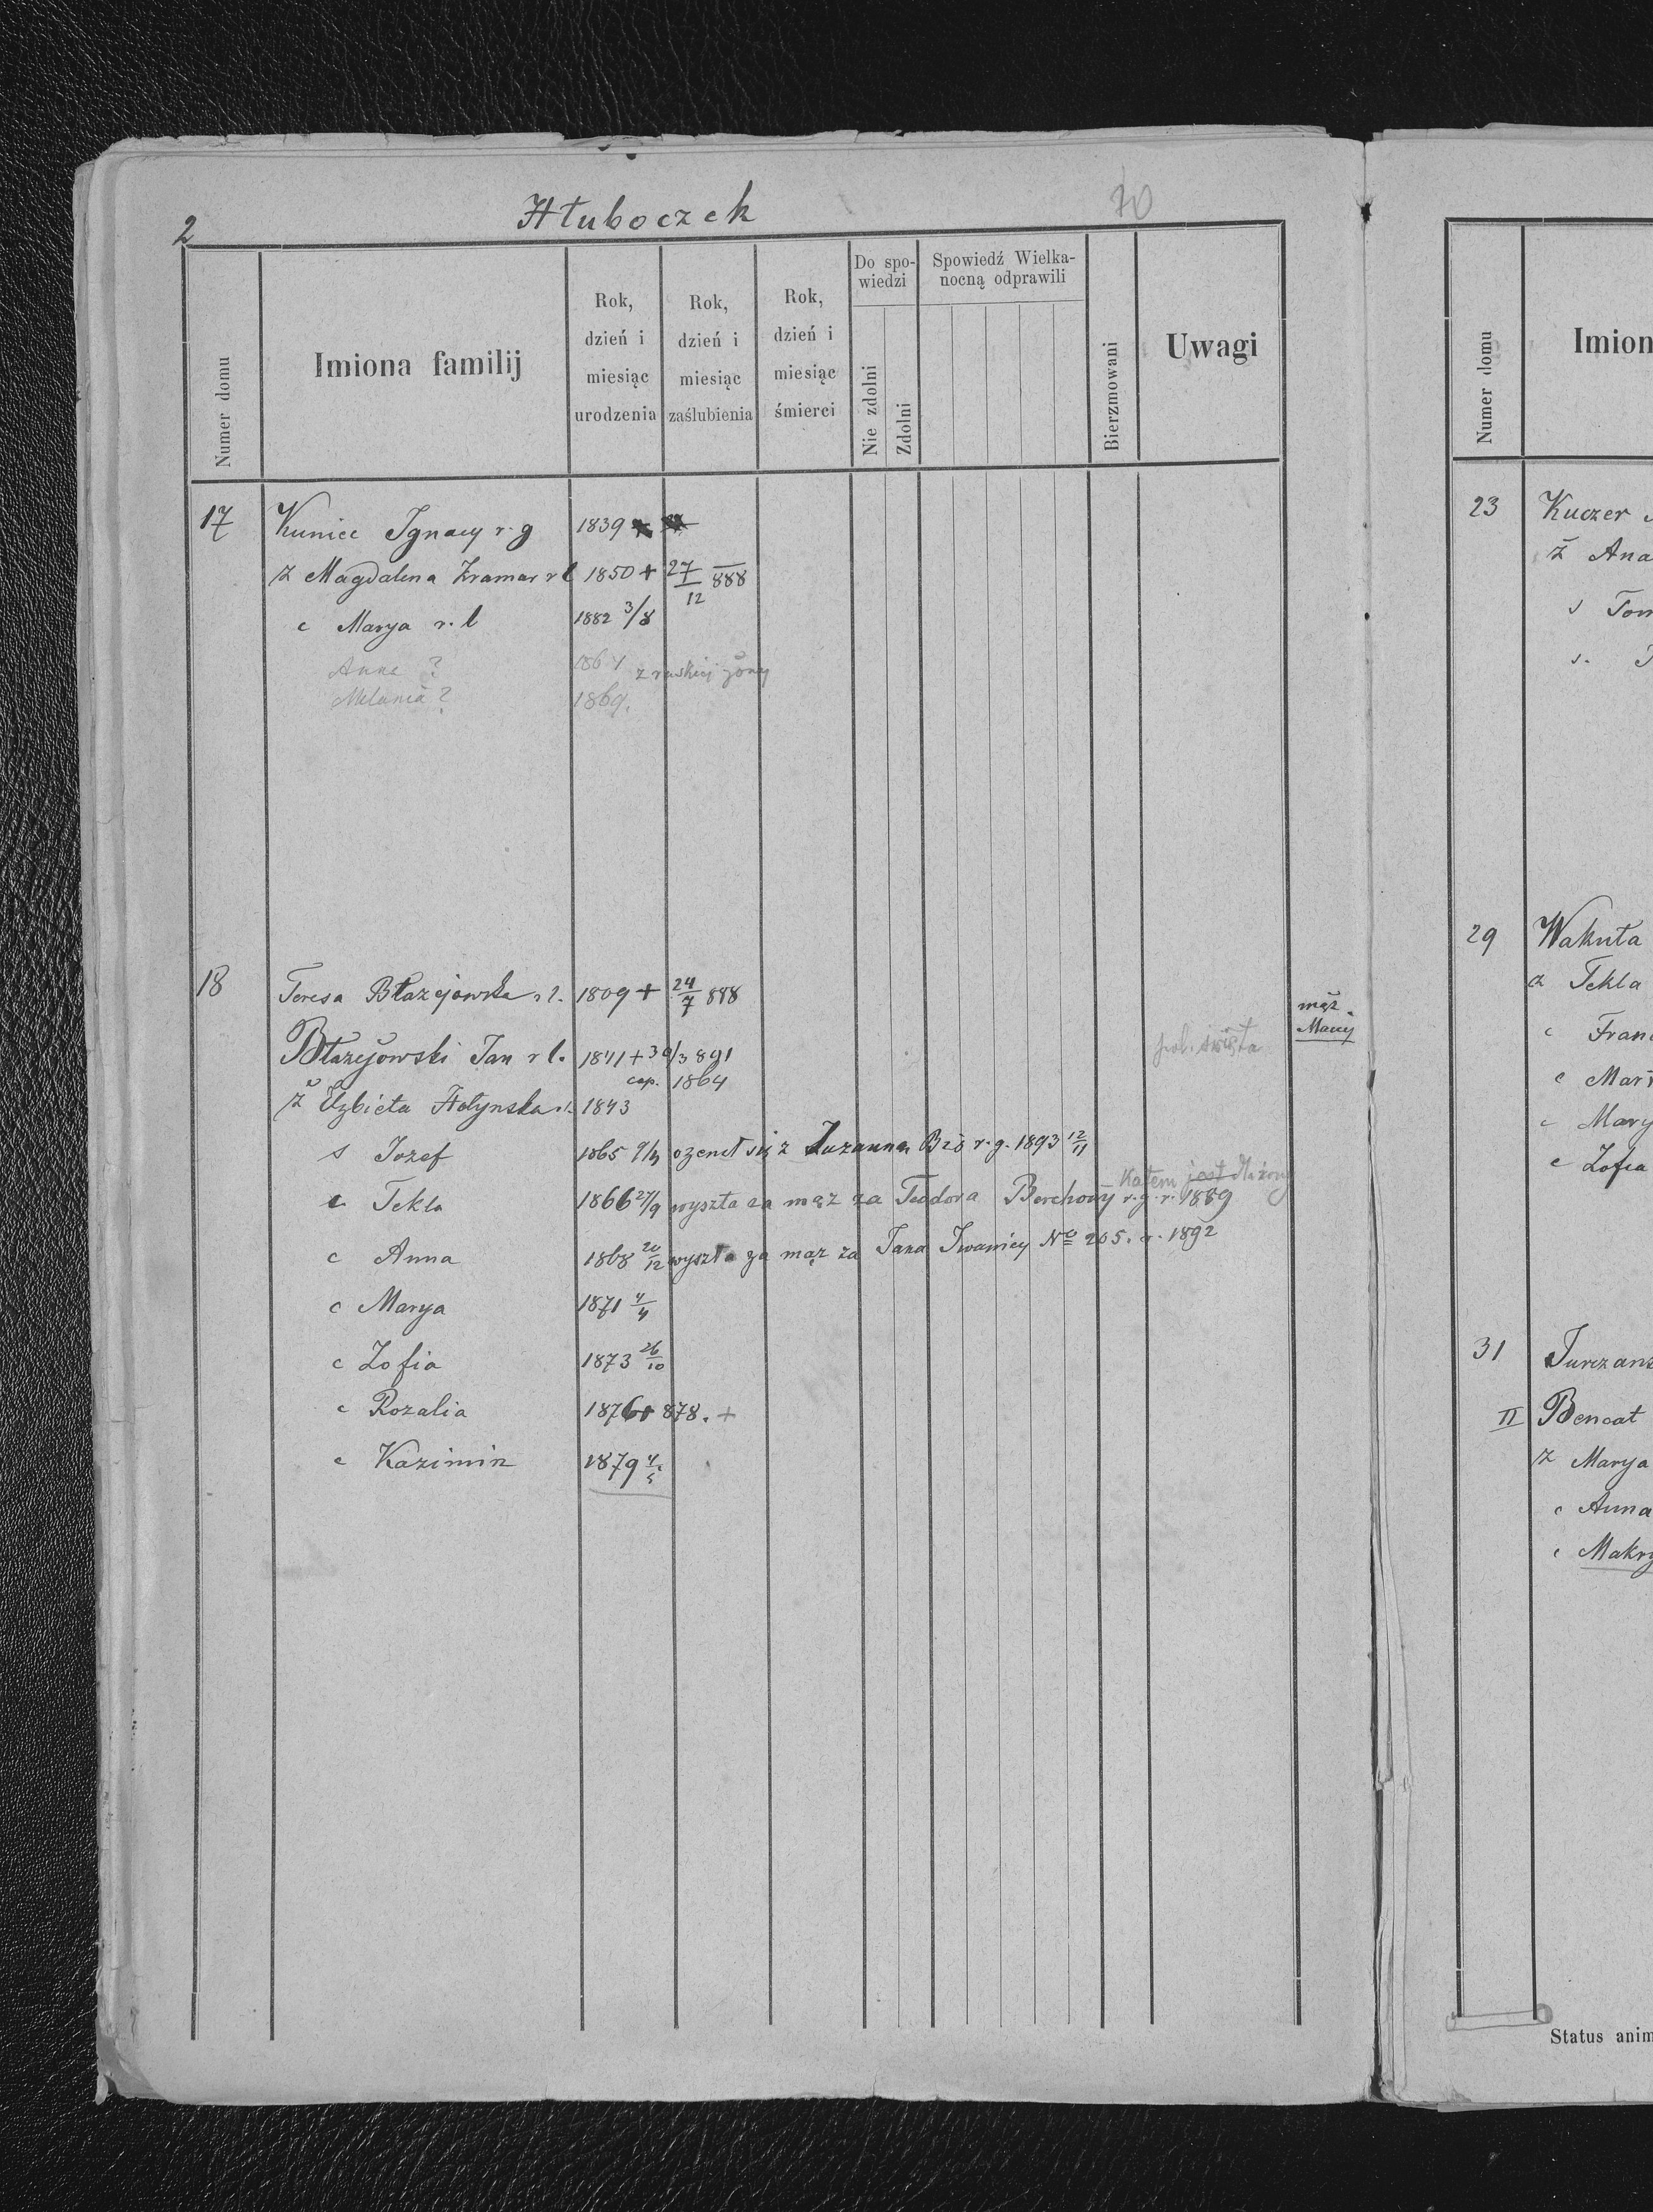 2
Hłuboczek
70
Numer domu
Imiona familij
Rok, dzień i miesiąc urodzenia
Rok, dzień i miesiąc zaślubienia
Rok, dzień i miesiąc śmierci
Do spo-wiedzi
Nie zdolni
Zdolni
Spowiedź Wielka-nocną odprawili
Bierzmowani
Uwagi
17 Kuniec Ignacy r. g 1839
ż Magdalena r l 1850 + 27/12 888
c Marya r. l 1882 3/8
Anna ? 1864 z ruskiej żony
Melania ? 1869.
18 Teresa Błazejowska r l. 1809 + 24/7 888
mąż
Błazejowski Jan r l. 1841 + 30/3 891
cop. 1864
ż Elzbieta Hołynska r l. 1843
s Jozef 1865 ozenił się z Zuzanna r. g. 1893 12/11
c Tekla 1866 27/9 wyszła za mąz za Teodora Berchowy r. g. r. 1889
c Anna 1868 20/12 wyszła za mąz za Jana Iwanicy No 205. r. 1892
c Marya 1871 4/4
c Zofia 1873 26/10
c Rozalia 1876 + 878. +
c Kazimir 1879
Numer domu
Imion
23 Kuczer
ż Ana
s Tom
s.
29 Wakuła
z Tekla
c Franc
c Mar
c Mary
c Zofia
31 Jurczans
II Bencat
z Marya
c Anna
c Makry
Status anim